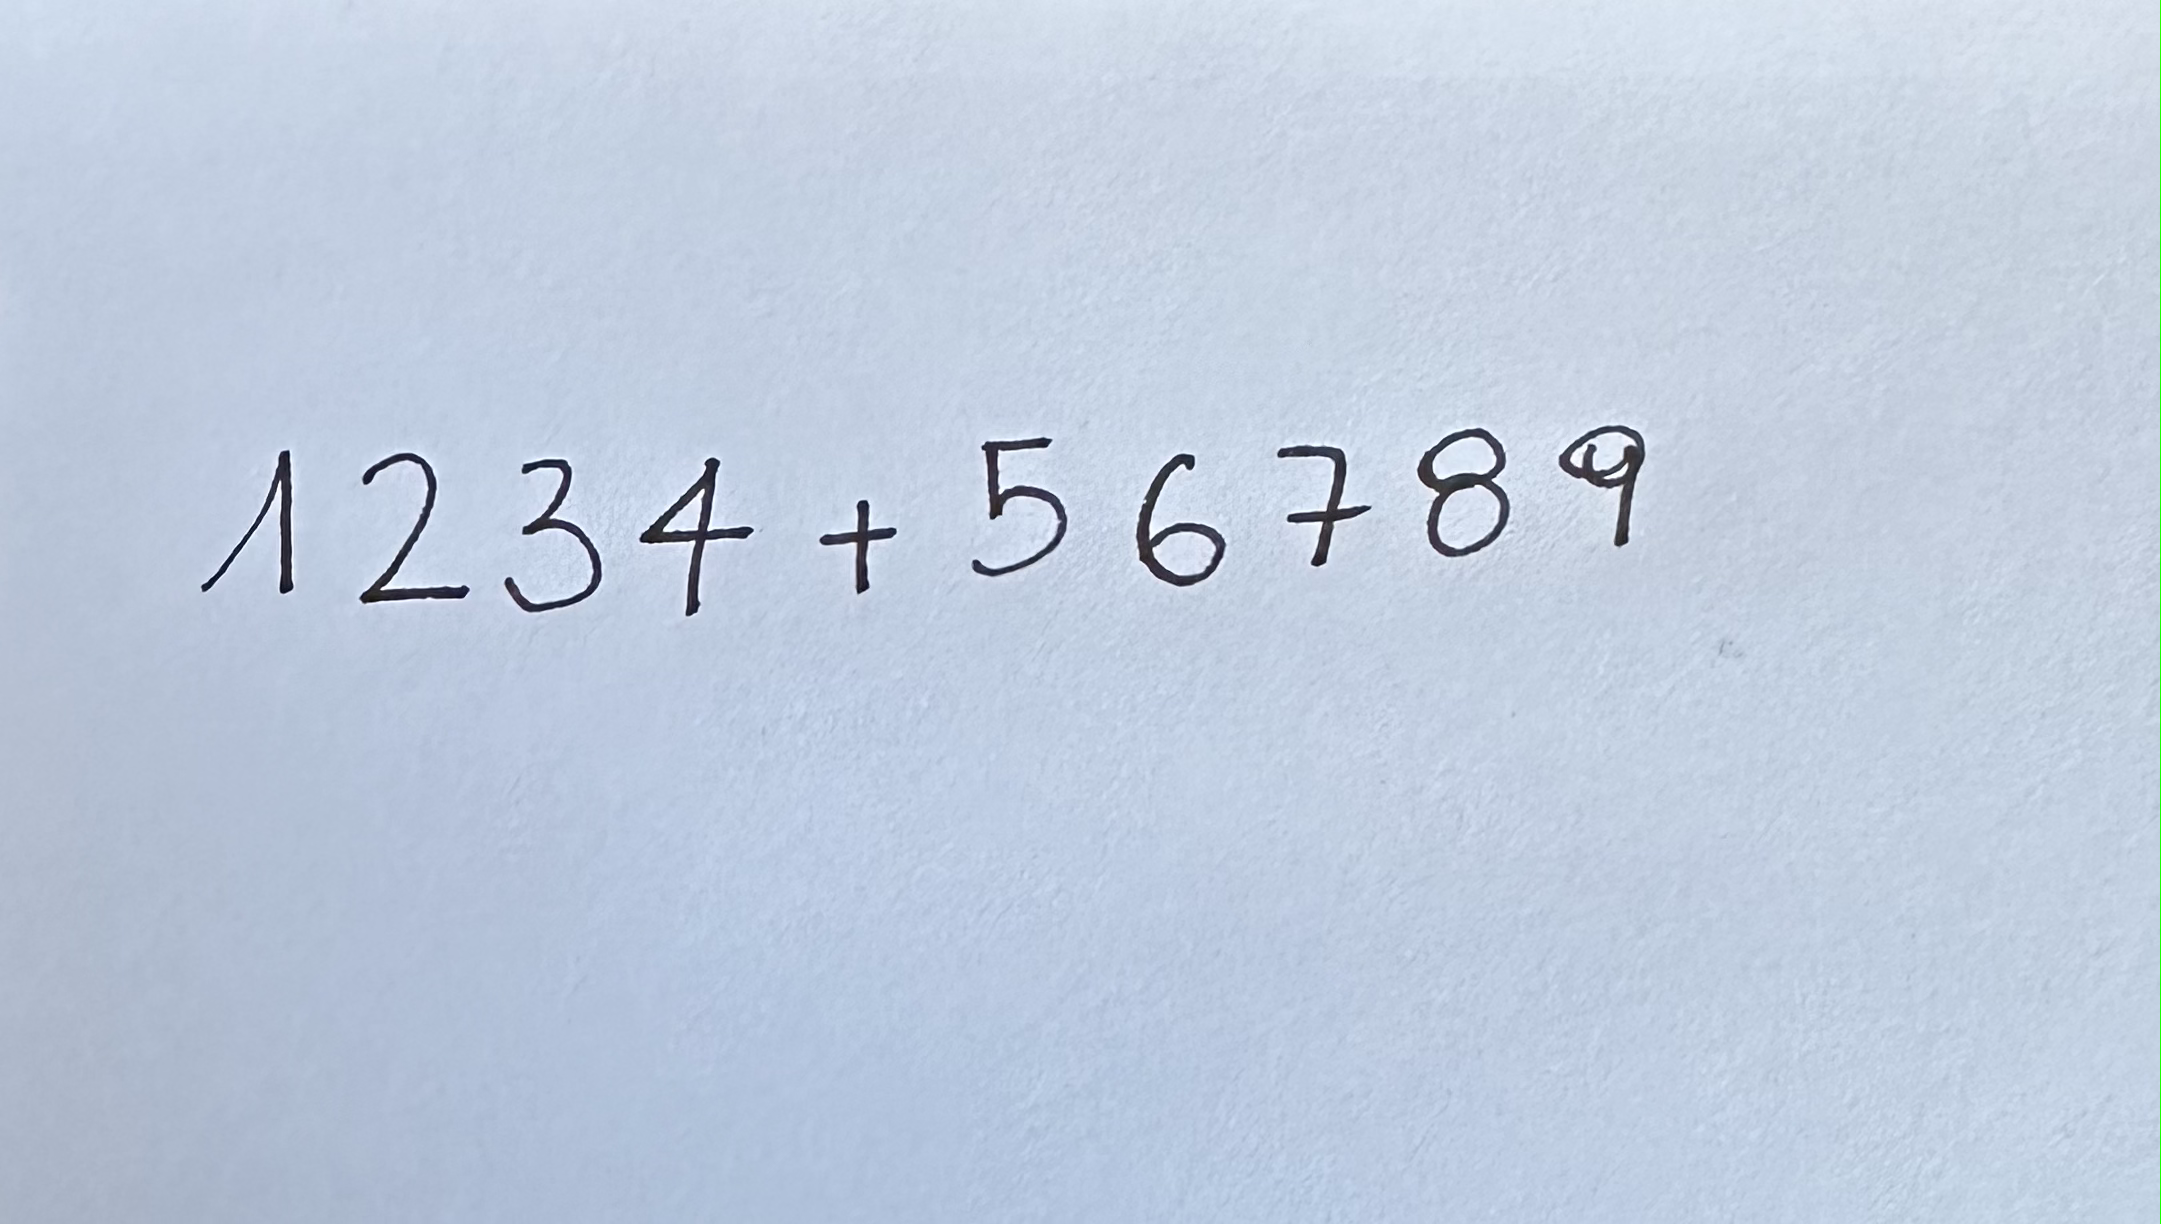 1234 + 56789